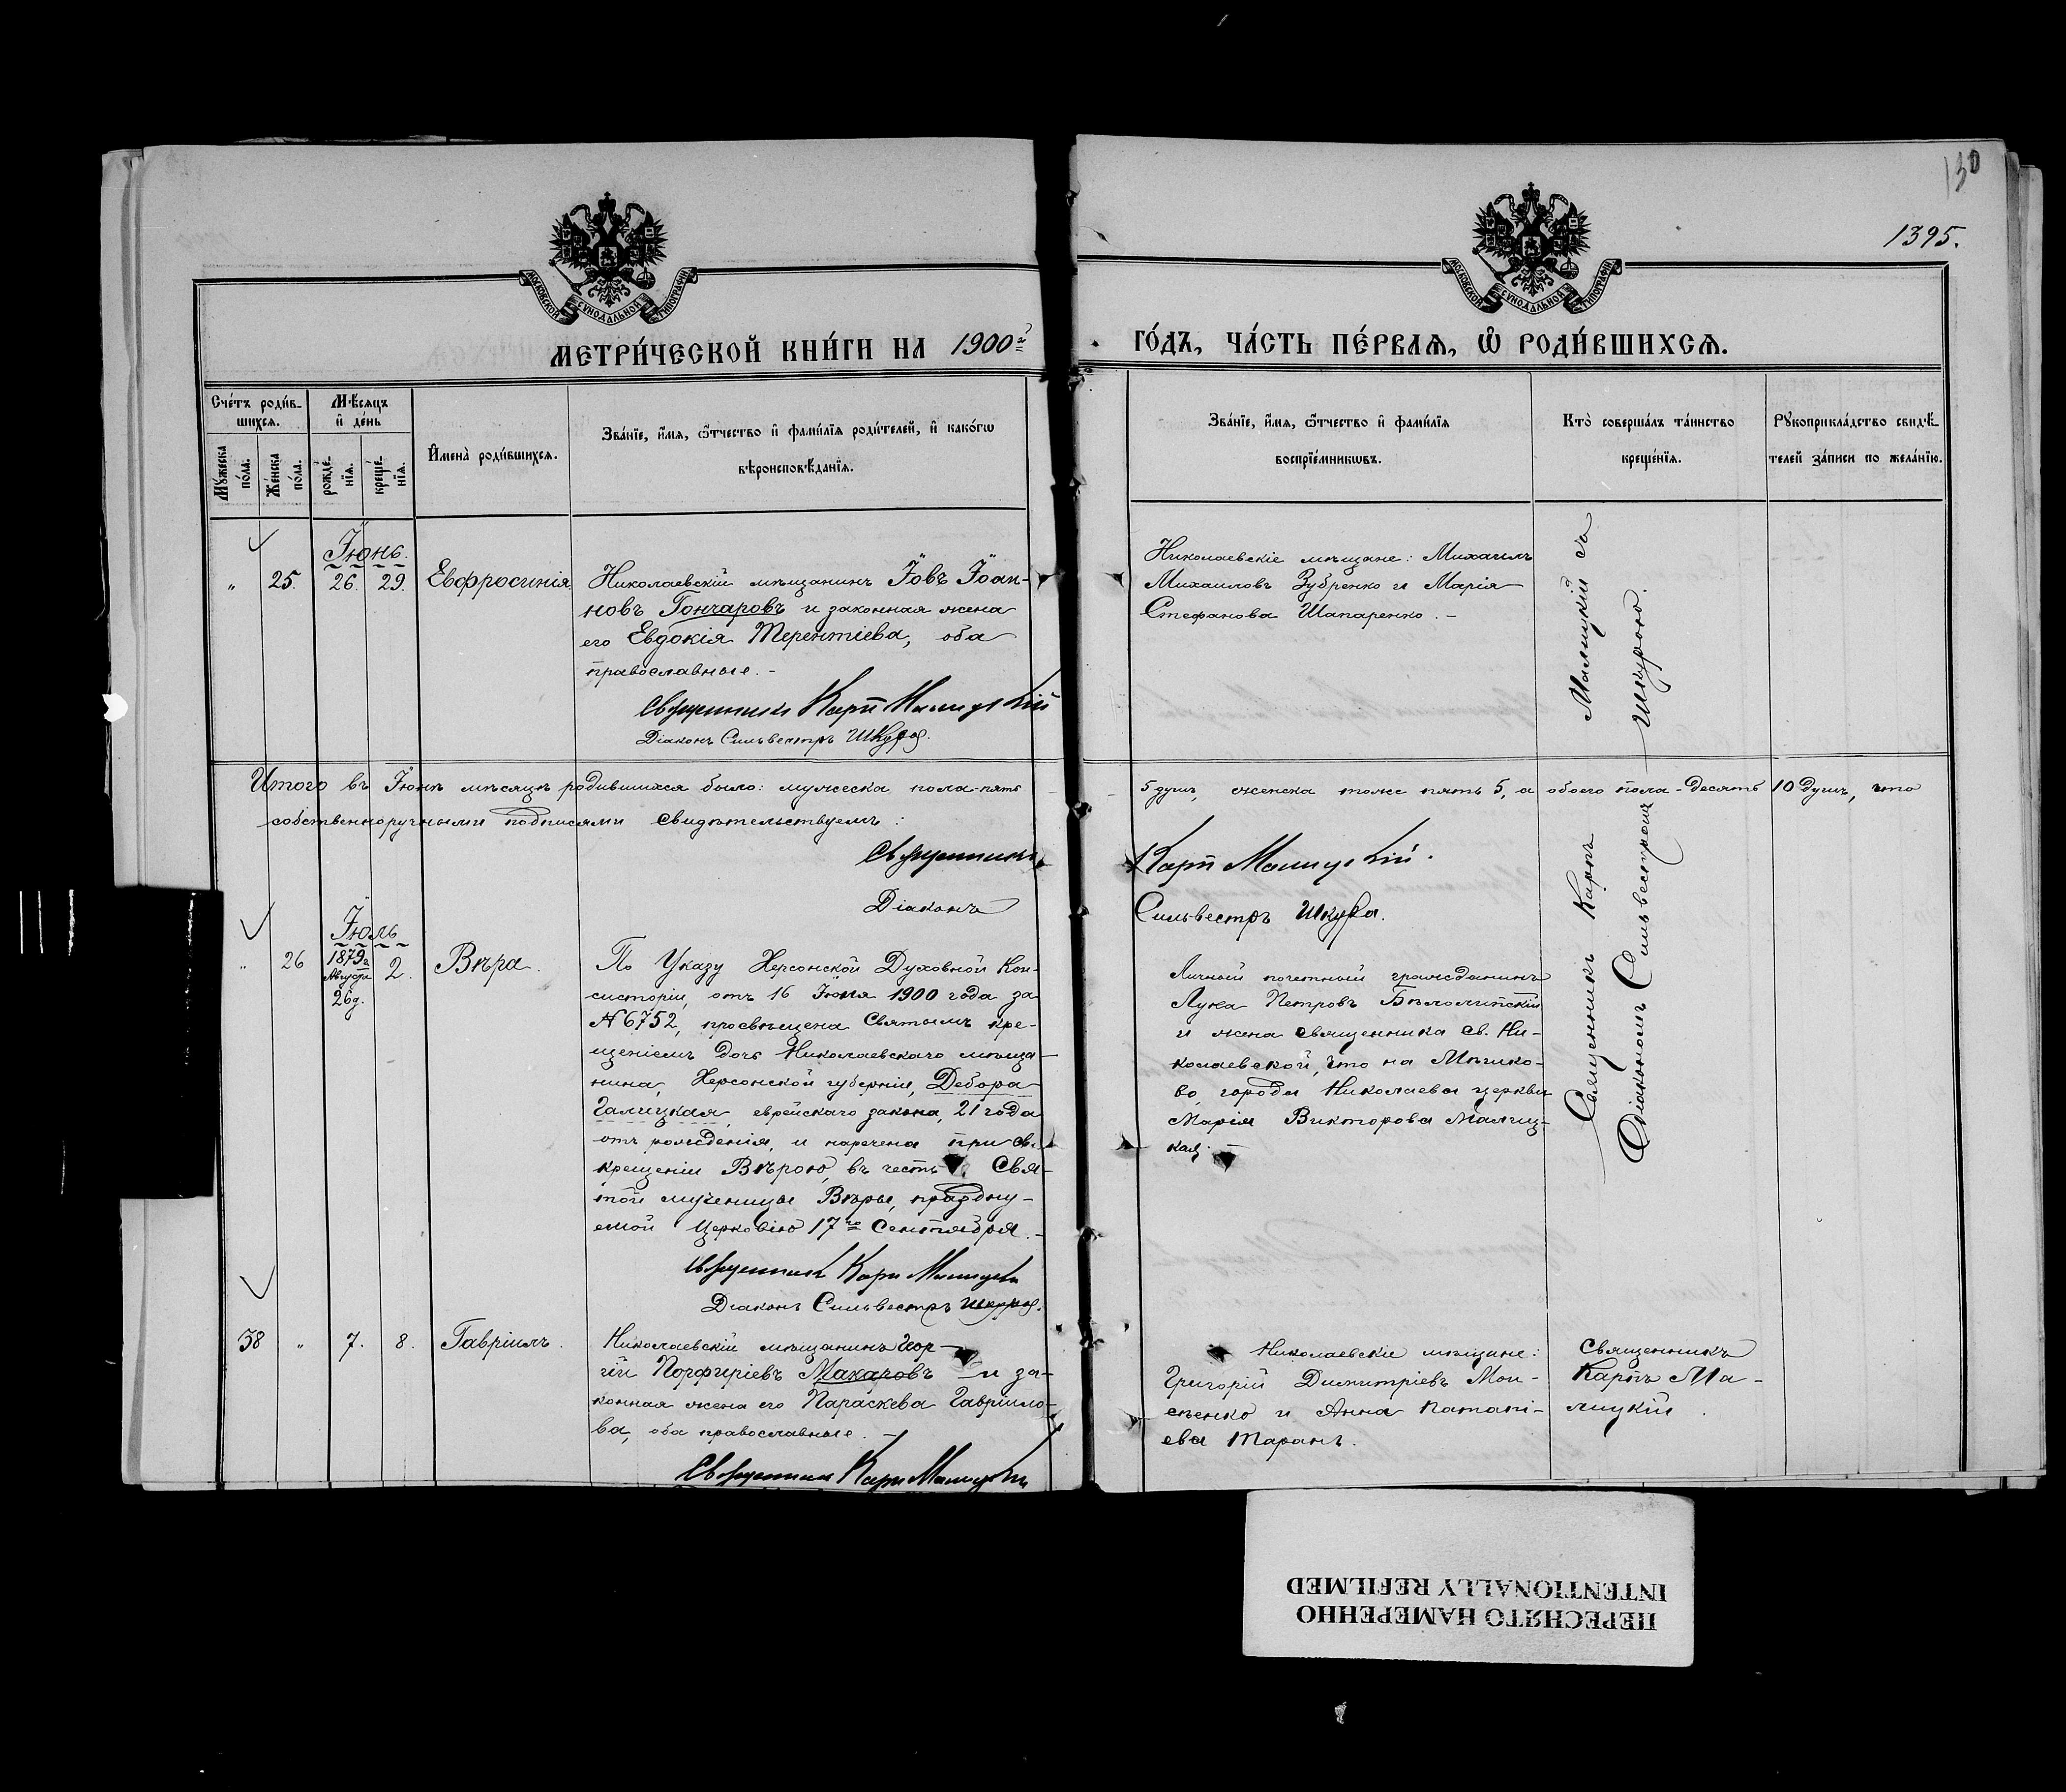 130
1395.
МОСКОВСКОЙ СѴНОДАЛЬНОЙ ТИПОГРАФІИ
МОСКОВСКОЙ СѴНОДАЛЬНОЙ ТИПОГРАФІИ
МЕТРИ́ЧЕСКОЙ КНИ́ГИ НА 1900й ГО́ДЪ, ЧА́СТЬ ПЕ́РВАѦ, Ѡ҆ РОДИ́ВШИХСѦ.
Сче́тъ роди́в-
шихся.
Му́жеска
по́ла.
Же́нска
по́ла.
Мѣ́сяцъ
и҆ де́нь
рожде́-
нїя.
креще́-
нїя.
И҆мена̀ роди́вшихся.
Зва́нїе, и҆́мя, ѻ҆́тчество и҆ фами́лїя роди́телей, и҆ како́гѡ
вѣроисповѣ́данїя.
Зва́нїе, и҆́мя, ѻ҆́тчество и҆ фами́лїя
воспрїе́мникѡвъ.
Кто̀ соверша́лъ та́инство
креще́нїя.
Рꙋкоприкла́дство свидѣ́-
телей за́писи по жела́нїю.
Іюнь.
„ 25. 26. 29. Евфросинія
Николаевскій мѣщанинъ Іовъ Іоан-
новъ Гончаровъ и законная жена
его Евдокія Терентіева, оба
православные. -
Священникъ Карпъ Малицкій
Діаконъ Сильвестръ Шкура.
Николаевскіе мѣщане: Михаилъ
Михаиловъ Зубренко и Марія
Стефанова Шапаренко. -
Священникъ Карпъ Малицкій съ
Діакономъ Сильвестромъ Шкурою.
Итого въ Іюнѣ мѣсяцѣ родившихся было: мужеска пола-пять 5 душъ, женска тоже пять 5, а обоего пола - десять 10 душъ, что
собственноручными подписями свидѣтельствуемъ:
Священникъ Карпъ Малицкій.
Діаконъ Сильвестръ Шкура.
Іюль
„ 26 1879г. Августа 26д. 2. Вѣра.
По Указу Херсонской Духовной Кон-
систоріи, отъ 16 Іюня 1900 года за
№ 6752, просвѣщена Святымъ кре-
щеніемъ дочь Николаевскаго мѣща-
нина, Херсонской губерніи, Дебора
Галицкая, еврейскаго закона, 21 года
отъ рожденія, и наречена при св.
крещеніи Вѣрою, въ честь Свя-
той мученицы Вѣры, праздну-
емой Церковію 17го Сентября. -
Священникъ Карпъ Малицкій
Діаконъ Сильвестръ Шкура.
Личный почетный гражданинъ
Лука Петровъ Бѣлолипскій
и жена священника св. Ни-
колаевской, что на Мѣшко-
во, города Николаева церкви
Марія Викторова Малиц-
кая. -
38 „ 7. 8. Гавріилъ.
Николаевскій мѣщанинъ Геор-
гій Порфиріевъ Макаровъ и за-
конная жена его Параскева Гаврило-
ва, оба православные. -
Священникъ Карпъ Малицкій
Николаевскіе мѣщане:
Григорій Димитріевъ Мои-
сеенко и Анна Потапі-
ева Таранъ.
Священникъ
Карпъ Ма-
лицкій
ПЕРЕСНЯТО НАМЕРЕННО
INTENTIONALLY REFILMED